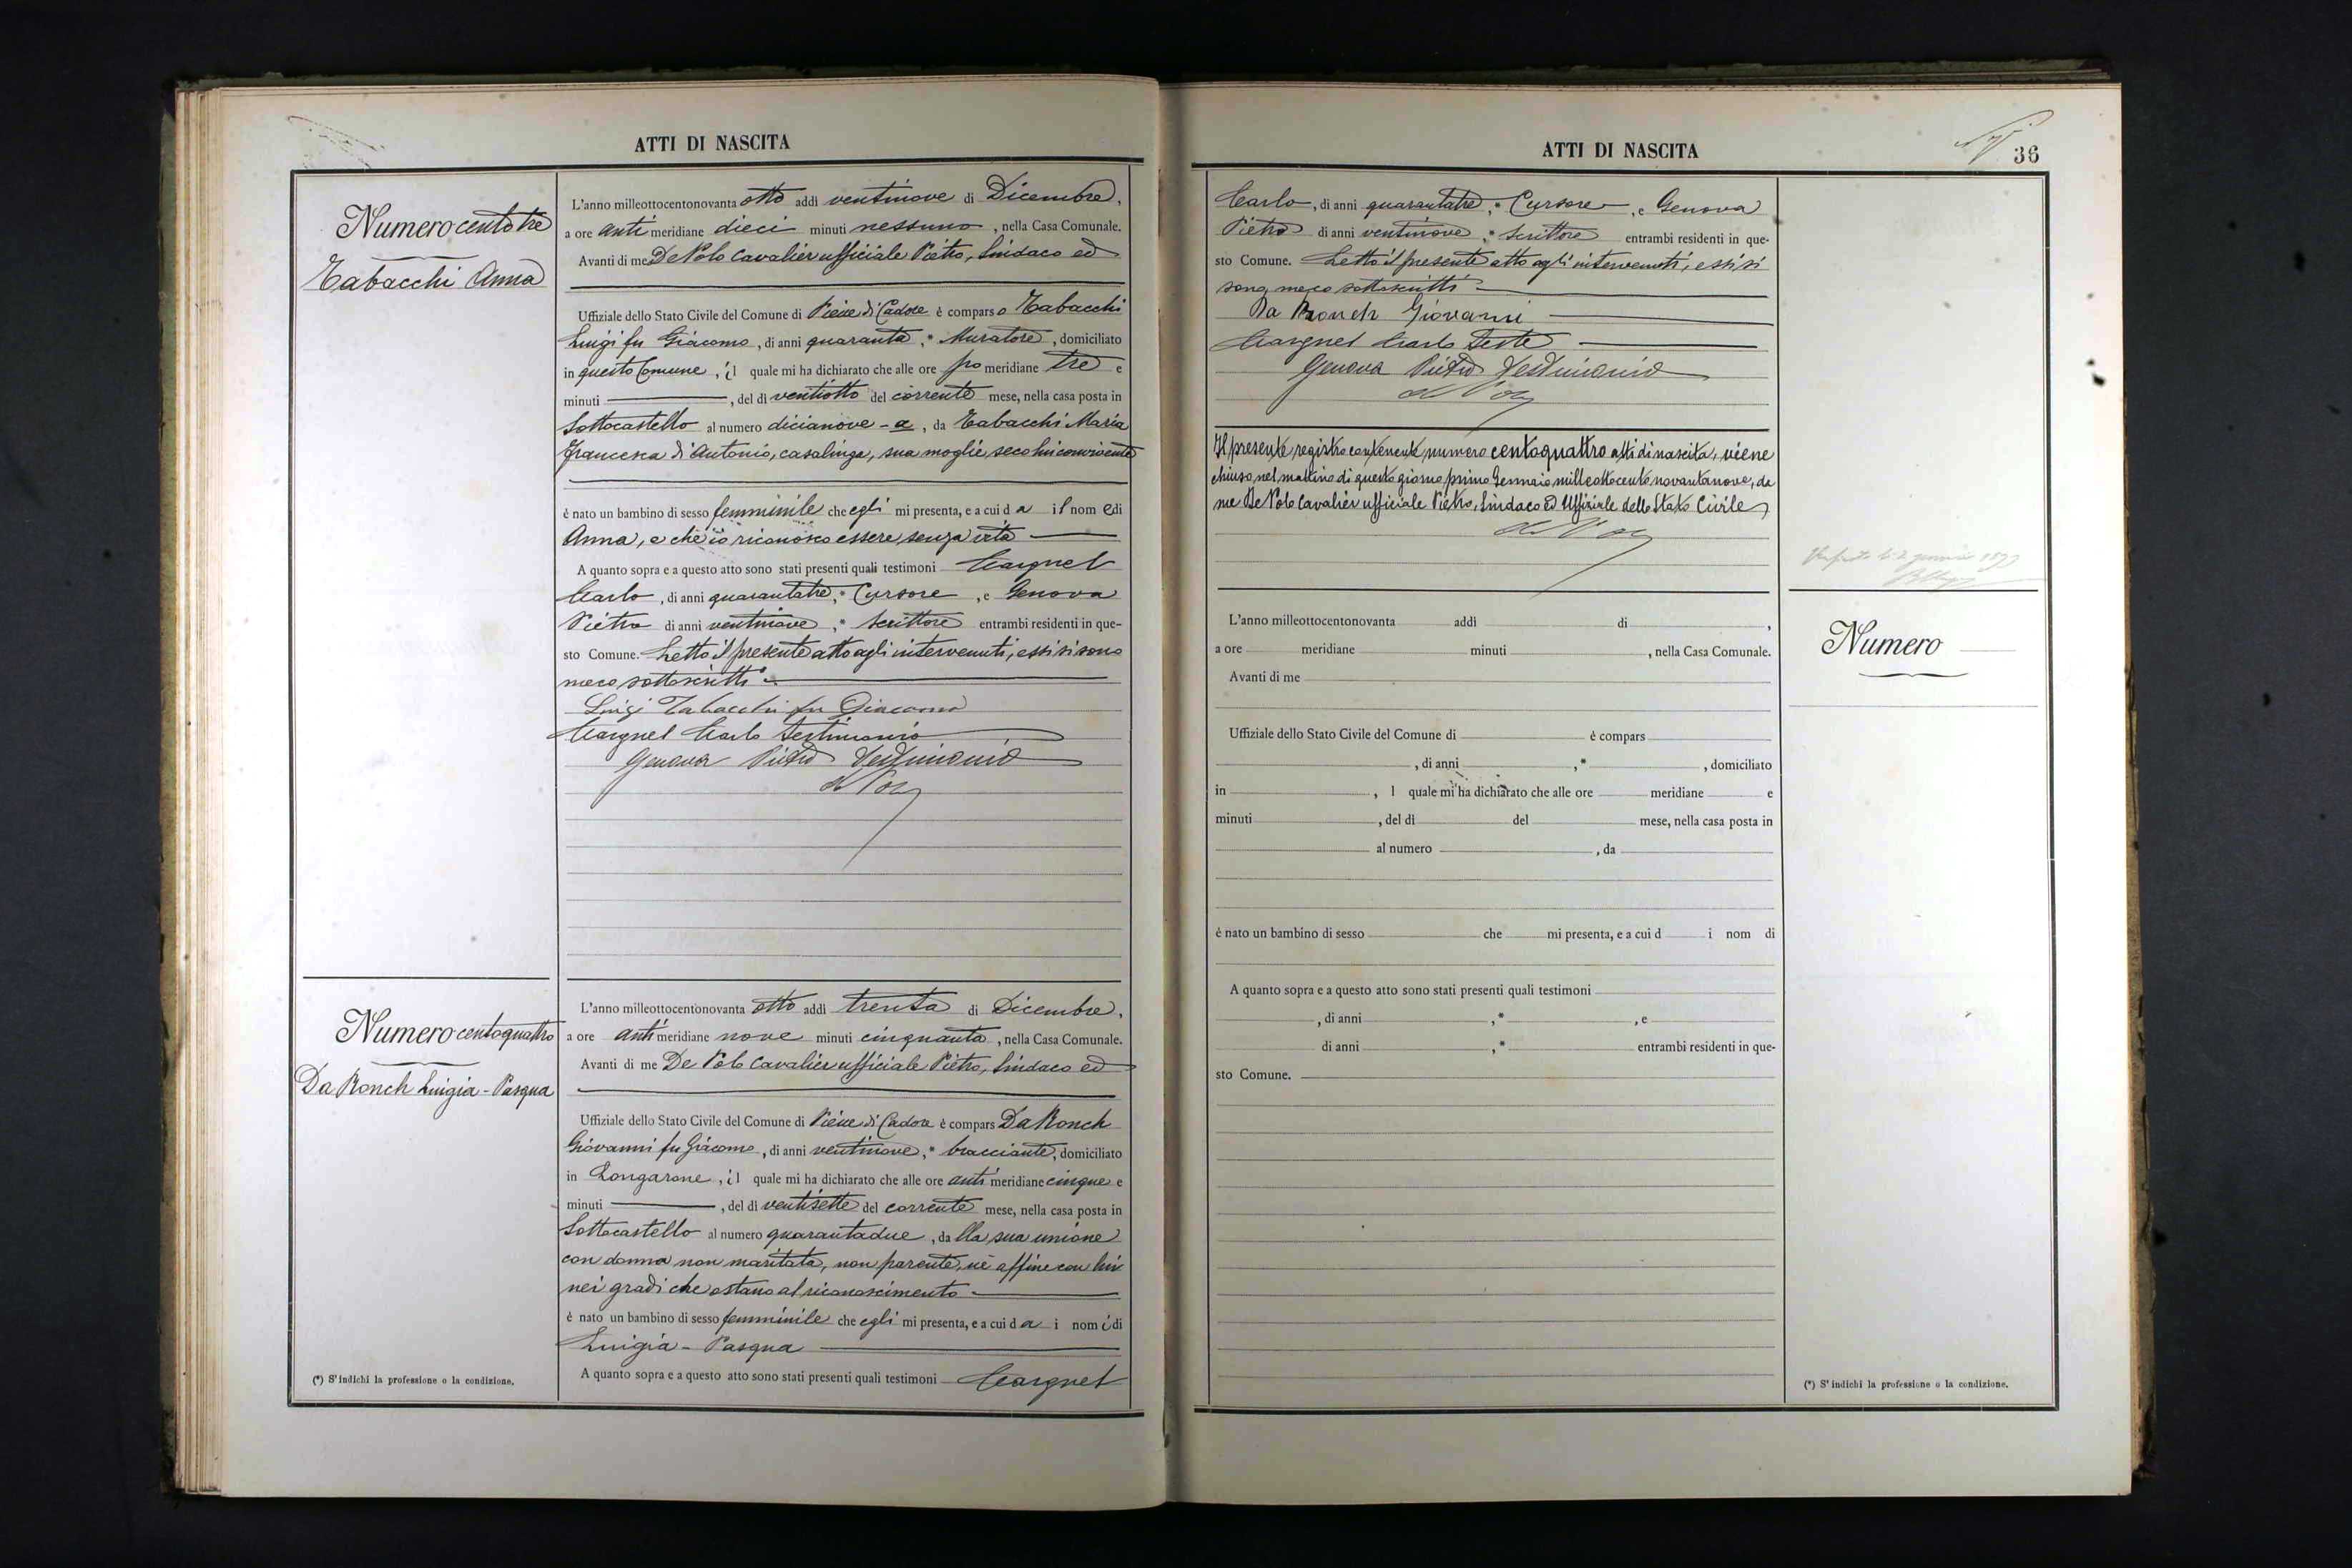 ATTI DI NASCITA
Numero centotre
Tabacchi Anna
L'anno milleottocentonovanta otto addì ventinove di Dicembre,
a ore anti meridiane dieci minuti nessuno, nella Casa Comunale.
Avanti di me De Polo Cavalier ufficiale Pietro, Sindaco ed
Uffiziale dello Stato Civile del Comune di Pieve di Cadore è comparso Tabacchi
Luigi fu Giacomo, di anni quaranta, * Muratore, domiciliato
in questo Comune, il quale mi ha dichiarato che alle ore po meridiane tre e
minuti , del dì ventiotto del corrente mese, nella casa posta in
Sottocastello al numero dicianove - a, da Tabacchi Maria
Francesca di Antonio, casalinga, sua moglie seco lui convivente
è nato un bambino di sesso femminile che egli mi presenta, e a cui da il nome di
Anna, e che io riconosco essere senza vita
A quanto sopra e a questo atto sono stati presenti quali testimoni Cargnel
Carlo, di anni quarantatre, * Cursore, e Genova
Pietro di anni ventinove, * Scrittore entrambi residenti in que-
sto Comune. Letto il presente atto agli intervenuti, essi si sono
meco sottoscritti
Luigi Tabacchi fu Giacomo
Cargnel Carlo testimonio
Genova Pietro Testimonio
Numero centoquattro
Da Ronch Luigia - Pasqua
L'anno milleottocentonovanta otto addì trenta di Dicembre,
a ore anti meridiane nove minuti cinquanta, nella Casa Comunale.
Avanti di me De Polo Cavalier ufficiale Pietro, Sindaco ed
Uffiziale dello Stato Civile del Comune di Pieve di Cadore è compars Da Ronch
Giovanni fu Giacomo, di anni ventinove, * bracciante, domiciliato
in Longarone, il quale mi ha dichiarato che alle ore anti meridiane cinque e
minuti , del dì ventisette del corrente mese, nella casa posta in
Sottocastello al numero quarantadue, dalla sua unione
con donna non maritata, non parente, nè affine con lui
nei gradi che ostano al riconoscimento
è nato un bambino di sesso femminile che egli mi presenta, e a cui da i nomi di
Luigia - Pasqua
A quanto sopra e a questo atto sono stati presenti quali testimoni Cargnel
(*) S'indichi la professione o la condizione.
ATTI DI NASCITA
36
Carlo, di anni quarantatre, * Cursore, e Genova
Pietro di anni ventinove, * Scrittore entrambi residenti in que-
sto Comune. Letto il presente atto agli intervenuti, essi si
sono meco sottoscritti
Da Ronch Giovanni
Cargnel Carlo Teste
Genova Pietro Testimonio
Il presente registro contenente numero centoquattro atti di nascita, viene
chiuso nel mattino di questo giorno primo Gennaio milleottocento novantanove, da
me De Polo Cavalier ufficiale Pietro, Sindaco ed Uffiziale dello Stato Civile
gennaio 1899
L'anno milleottocentonovanta addì di ,
a ore meridiane minuti , nella Casa Comunale.
Avanti di me
Uffiziale dello Stato Civile del Comune di è compars
, di anni , * , domiciliato
in , l quale mi ha dichiarato che alle ore meridiane e
minuti , del dì del mese, nella casa posta in
al numero , da
è nato un bambino di sesso che mi presenta, e a cui d i nom di
A quanto sopra e a questo atto sono stati presenti quali testimoni
, di anni , * , e
di anni , * entrambi residenti in que-
sto Comune.
Numero
(*) S'indichi la professione o la condizione.